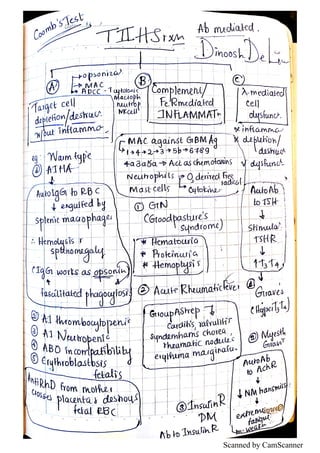 Coomb's Test
T II HS rxn
Ab mediated.
Dinoosh De Li
A
→ opsoniza
→ MAC
→ ADCC
Macroph
neutrop
NK cell
Target cell
depletion/destruc
w/out inflamma
eg:
① Warm type
AIHA
Auto IgG to RBC
↓ engulfed by
splenic macrophages
∴ Hemolysis &
splenomegaly
(IgG works as opsonin)
facilitated phagocytosis
② AI thrombocytopenic
③ AI Neutropenic
④ ABO incompatibility
⑤ Erythroblastosis
fetalis
Anti RhD from mother
crosses placenta & destroys
fetal RBC
B
Complement/
FcR mediated
INFLAMMAT
MAC against GBM Ag
1→4→2→3→5b→6789
4a3a5a → Act as chemotaxins
Neutrophils
Mast cells
O2 derived free
radical
Cytokine
① GN
(Goodpasture's
syndrome)
* Hematuria
* Proteinuria
* Hemoptysis
② Acute Rheumatic fever
Group A Strep
Carditis, valvulitis
Syndenhams chorea
rheumatic nodule
erythema marginatu
③ Insulin R
DM
Ab to Insulin R
C
mediated
cell
dysfunct.
x inflamma
x depletion/
destruc
✓ dysfunct.
Auto Ab
to TSH
↓
Stimula
TSHR
↓
↑T3T4
①
Graves
(HyperT3T4)
② Myesth
Gravi
Auto Ab
to AchR
↓
NM transmiss
↓
extreme
fatigue
m. weak
Scanned by CamScanner